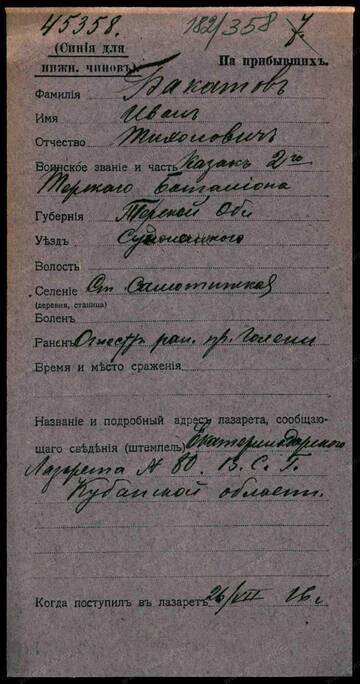 45358.
182/358 7.
(Синія для
нижн. чиновъ).
На прибывшихъ.
Фамилія Бакатовъ
Имя Иванъ
Отчество Тихоновичъ
Воинское званіе и часть Казакъ 2го
Терскаго Баталіона
Губернія Терской Обл
Уѣздъ
Волость
Селеніе Ст.
(деревня, станица)
Боленъ
Раненъ Огнестр. ран. пр. Голени
Время и мѣсто сраженія
Названіе и подробный адресъ лазарета, сообщаю-
щаго свѣдѣнія (штемпель) Екатеринодарскаго
Лазарета № 80. В. С. Г.
Кубанской области.
Когда поступилъ въ лазаретъ 26/VII 16 г